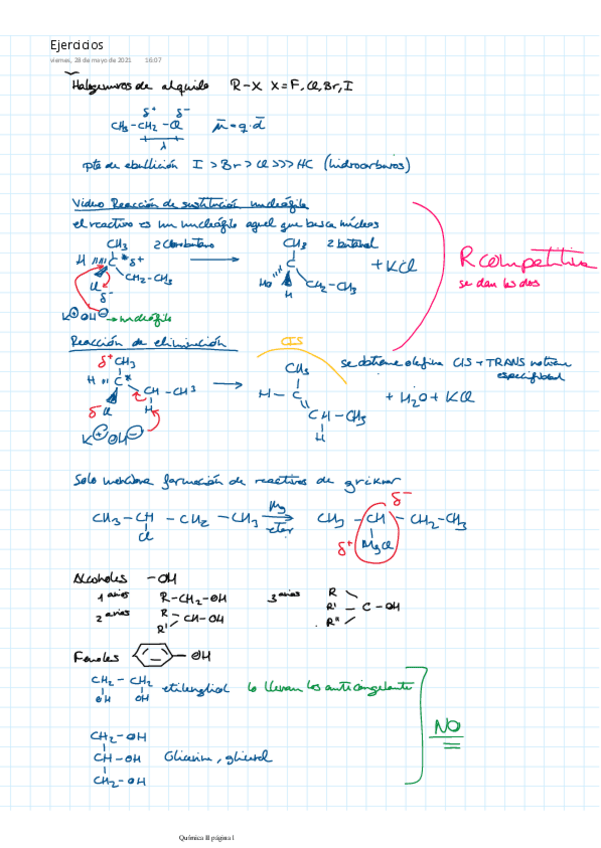 Ejercicios
viernes, 28 de mayo de 2021 16:07
Halogenuros de alquilo R-X X=F, Cl, Br, I
δ+ δ-
CH3-CH2-Cl μ=q·d
pto de ebullición I > Br > Cl >>> HC (hidrocarburos)
Video Reacción de sustitución nucleófila
el reactivo es un nucleófilo aquel que busca núcleos
CH3 2 clorobutano
H C* δ+
CH2-CH3
Cl
δ-
K⊕OH⊖ → nucleófilo
CH3 2 butanol
C
HO
H
CH2-CH3
+ KCl
R competitiva
se dan las dos
Reacción de eliminación
δ+ CH3
H C*
CH-CH3
δ Cl H
K⊕OH⊖
CIS
CH3
H-C
CH-CH3
H
se obtiene olefina CIS + TRANS no tienen
especificidad
+ H2O + KCl
Solo nombrar formación de reactivos de
CH3-CH-CH2-CH3 Mg
Cl
eter
δ-
CH3-CH-CH2-CH3
δ+ MgCl
Alcoholes -OH
1 arios R-CH2-OH
2 arios R
R' CH-OH
3 arios R
R' C-OH
R"
Fenoles -OH
CH2-CH2 etilenglicol lo llevan los anticongelante
OH OH
CH2-OH
CH-OH Glicerina, glicerol
CH2-OH
NO
Química II página 1